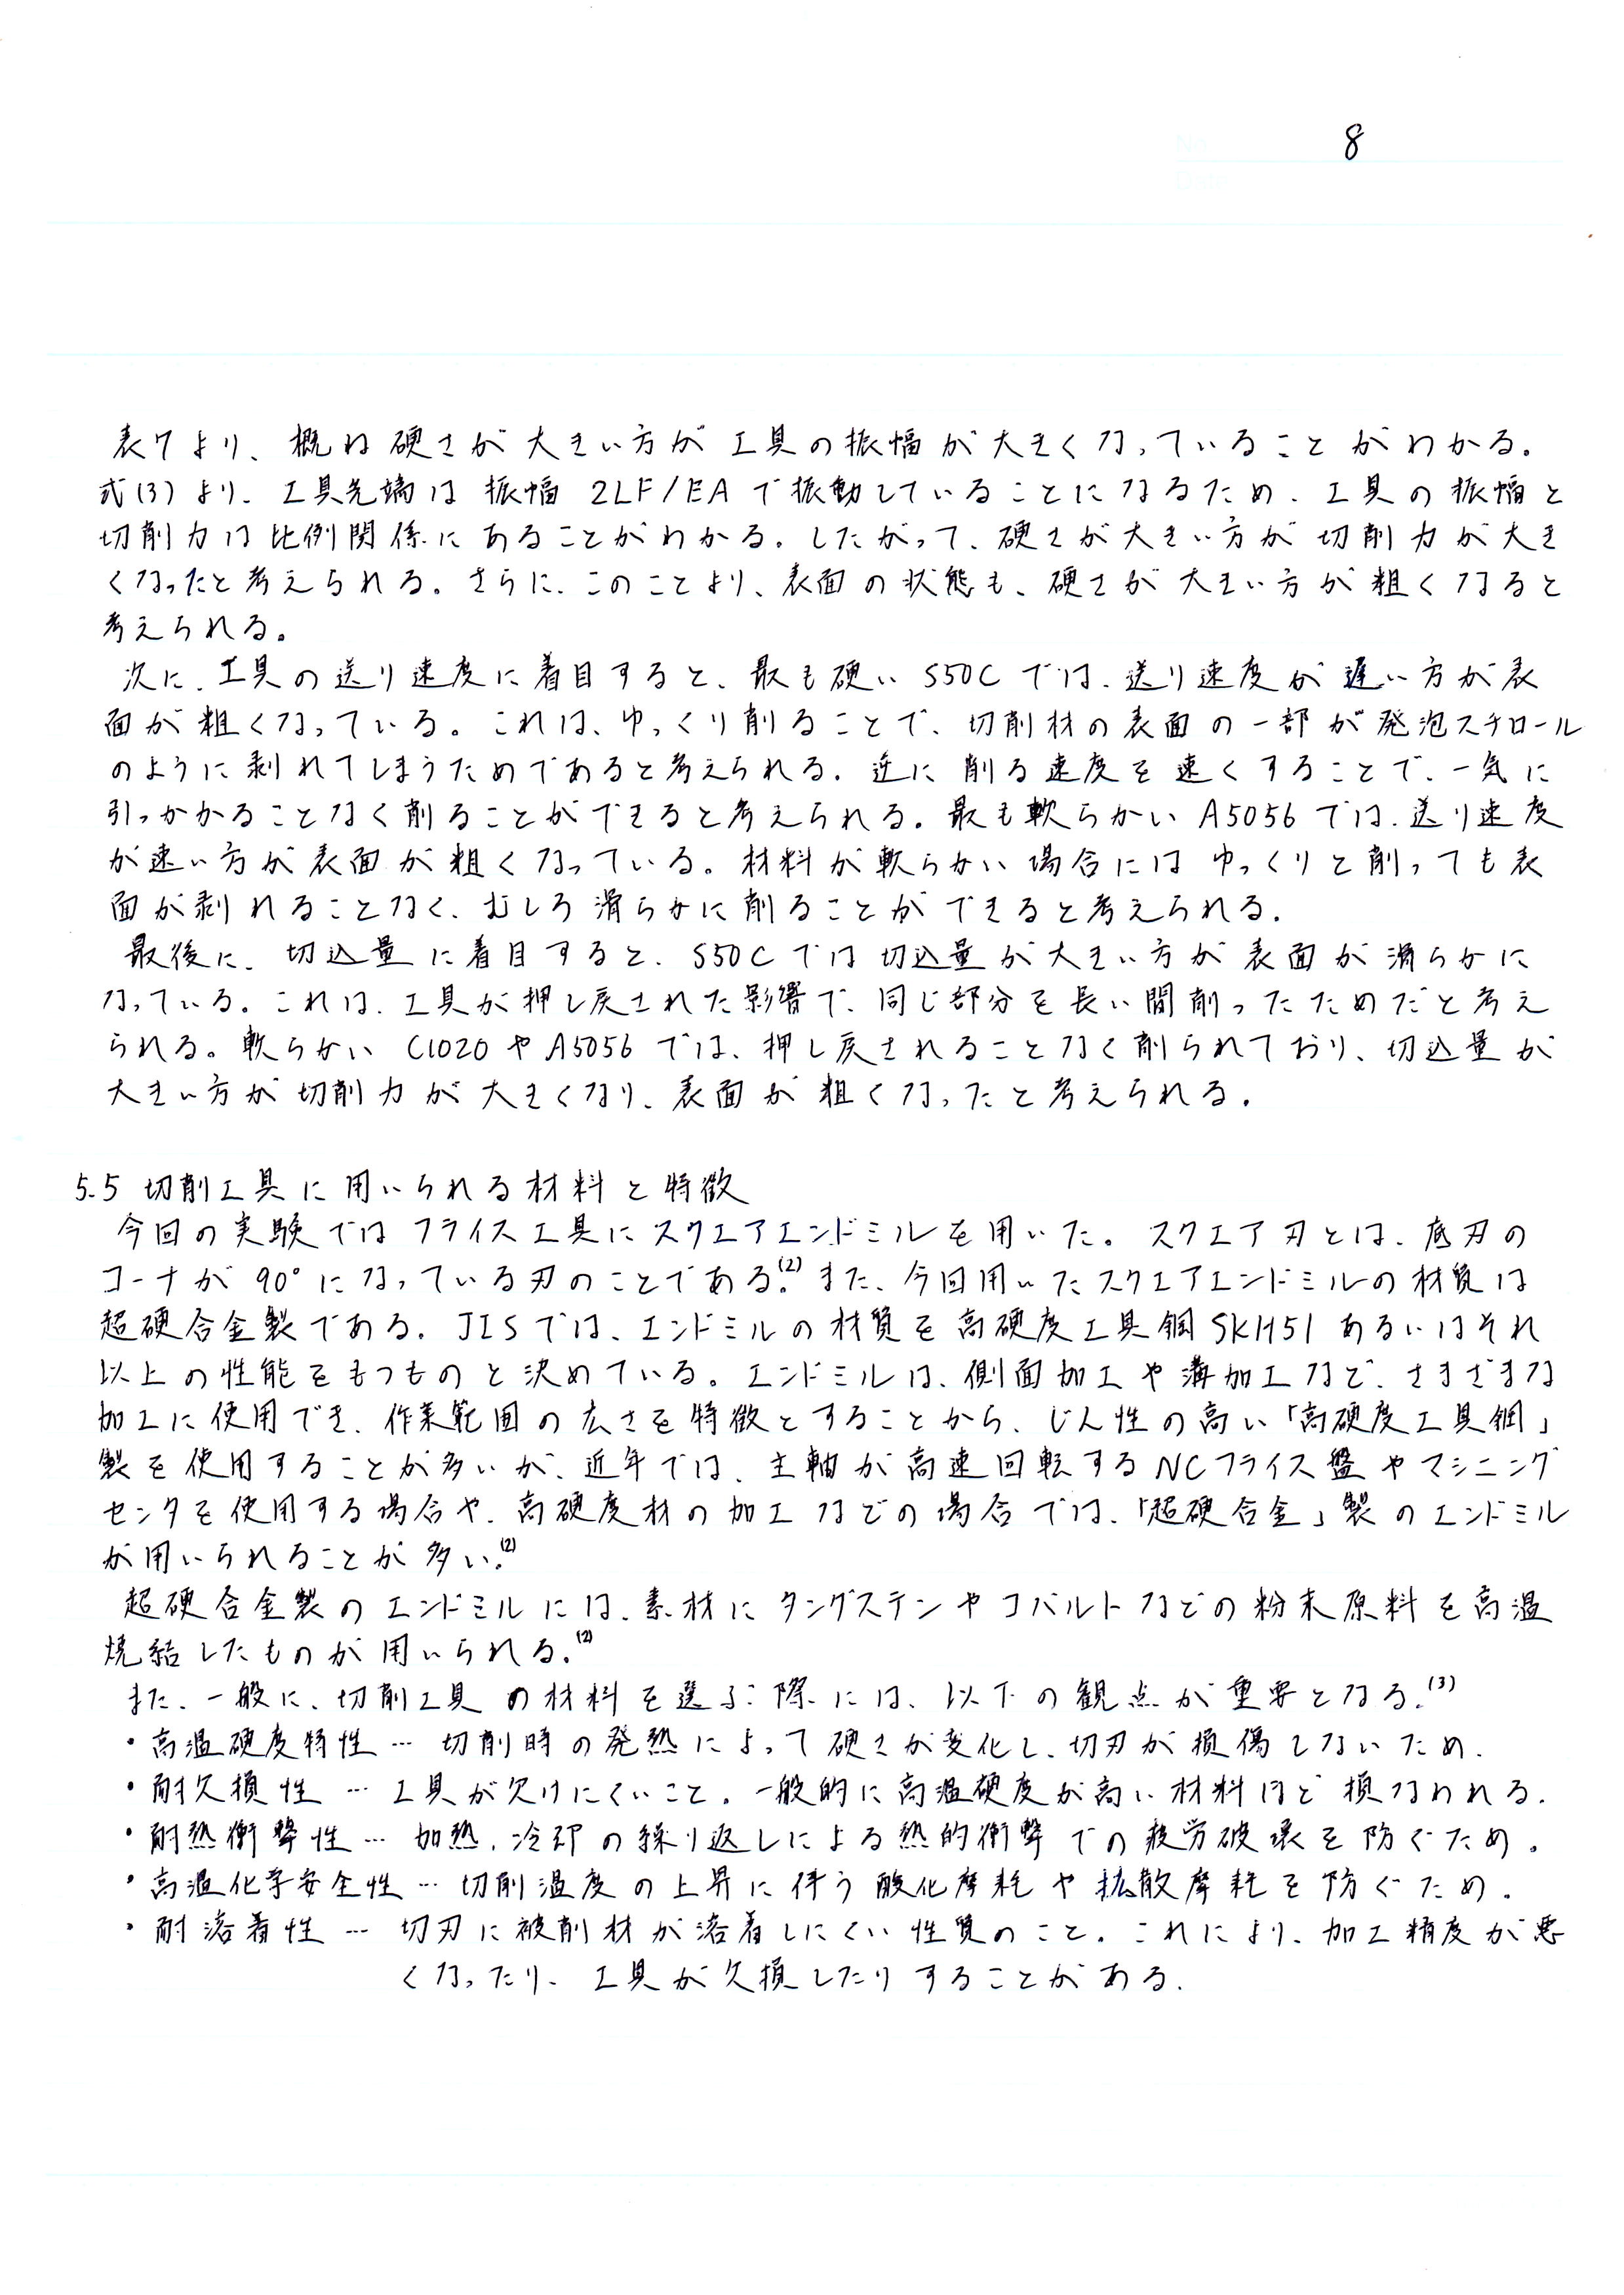 8
表7より、概ね硬さが大きい方が工具の振幅が大きくなっていることがわかる。
式(3)より、工具先端は振幅 2LF/EAで振動していることになるため、工具の振幅と
切削力は比例関係にあることがわかる。したがって、硬さが大きい方が切削力が大き
くなったと考えられる。さらに、このことより、表面の状態も、硬さが大きい方が粗くなると
考えられる。
次に、工具の送り速度に着目すると、最も硬い S50Cでは、送り速度が遅い方が表
面が粗くなっている。これは、ゆっくり削ることで、切削材の表面の一部が発泡スチロール
のように剥れてしまうためであると考えられる。逆に削る速度を速くすることで、一気に
引っかかることなく削ることができると考えられる。最も軟らかい A5056では、送り速度
が速い方が表面が粗くなっている。材料が軟らかい場合にはゆっくりと削っても表
面が剥れることなく、むしろ滑らかに削ることができると考えられる。
最後に、切込量に着目すると、S50Cでは切込量が大きい方が表面が滑らかに
なっている。これは、工具が押し戻された影響で、同じ部分を長い間削ったためだと考え
られる。軟らかい C1020やA5056では、押し戻されることなく削られており、切込量が
大きい方が切削力が大きくなり、表面が粗くなったと考えられる。
5.5 切削工具に用いられる材料と特徴
今回の実験ではフライス工具にスクエアエンドミルを用いた。スクエア刃とは、底刃の
コーナが90°になっている刃のことである。(2) また、今回用いたスクエアエンドミルの材質は
超硬合金製である。JISでは、エンドミルの材質を高硬度工具鋼SKH51あるいはそれ
以上の性能をもつものと決めている。エンドミルは、側面加工や溝加工など、さまざまな
加工に使用でき、作業範囲の広さを特徴とすることから、じん性の高い「高硬度工具鋼」
製を使用することが多いが、近年では、主軸が高速回転するNCフライス盤やマシニング
センタを使用する場合や、高硬度材の加工などの場合では、「超硬合金」製のエンドミル
が用いられることが多い。(2)
超硬合金製のエンドミルには、素材にタングステンやコバルトなどの粉末原料を高温
焼結したものが用いられる。(2)
また、一般に、切削工具の材料を選ぶ際には、以下の観点が重要となる。(3)
・高温硬度特性 … 切削時の発熱によって硬さが変化し、切刃が損傷しないため。
・耐欠損性 … 工具が欠けにくいこと。一般的に高温硬度が高い材料ほど損なわれる。
・耐熱衝撃性 … 加熱、冷却の繰り返しによる熱的衝撃での疲労破壊を防ぐため。
・高温化学安全性 … 切削温度の上昇に伴う酸化摩耗や拡散摩耗を防ぐため。
・耐溶着性 … 切刃に被削材が溶着しにくい性質のこと。これにより、加工精度が悪
くなったり、工具が欠損したりすることがある。